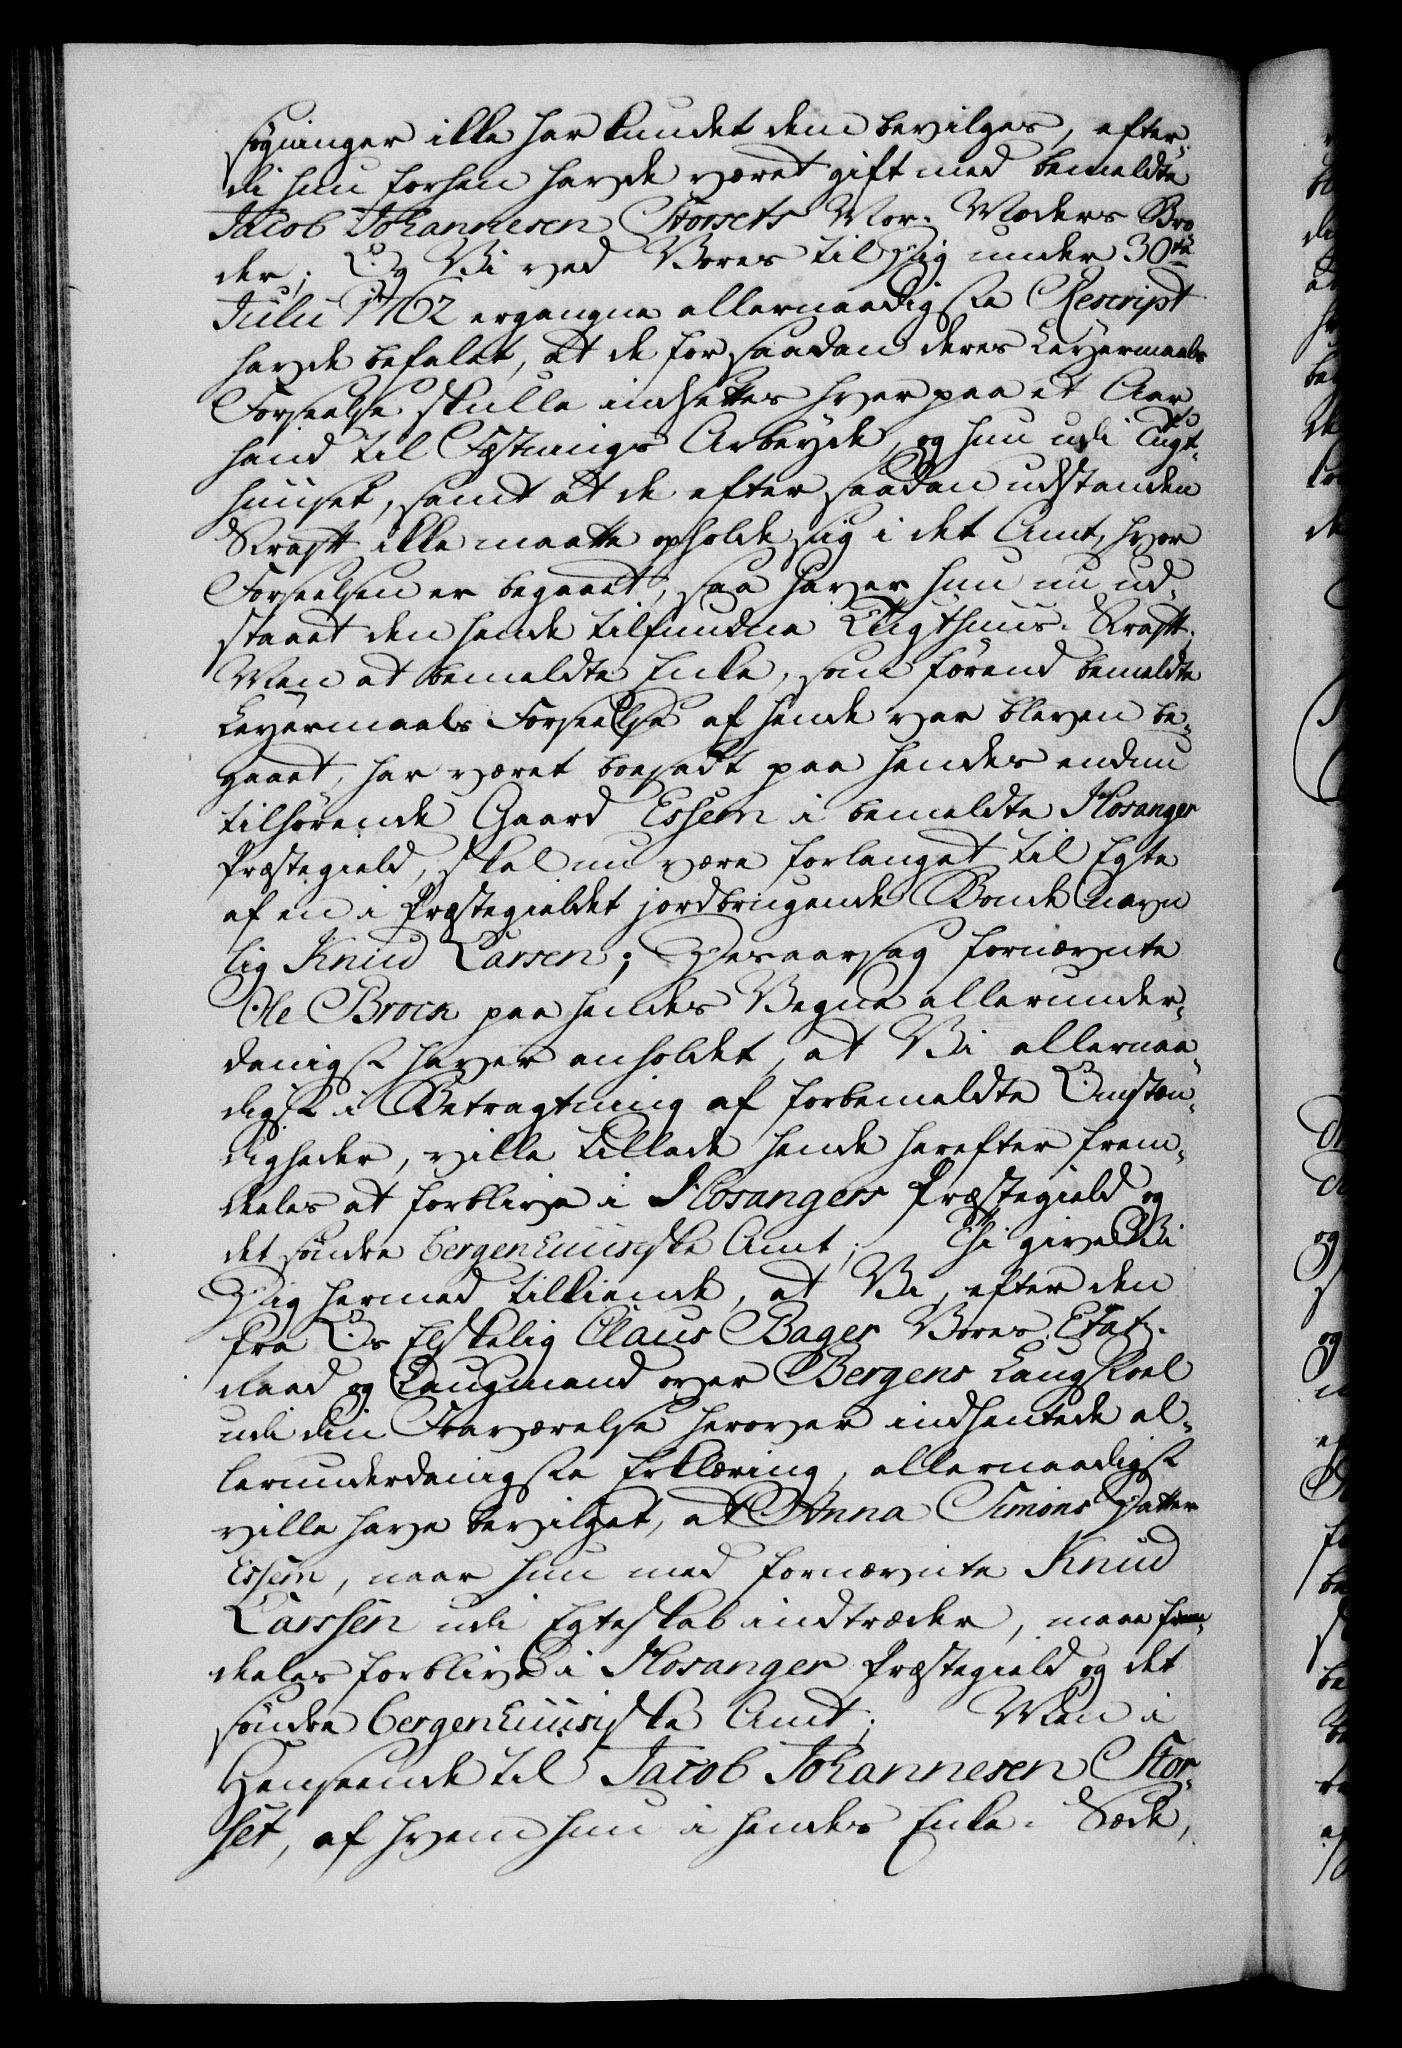 søgninger ikke har kundet dem bevilges, efter-
di hun forhen havde været gift med bemeldte
Jacob Johannesen Storsets Mor-Moders Bro
der; Og Vi ved Vores til Dig under 30te
Julii 1762 ergangne allernaadigste Rescript
havde befalet, at de for saadan deres Leyermaals
Forseelse skulle indsettes hver paa et Aar
hand til Fæstnings Arbeyde, og hun udi Tugt-
huuset, samt at de efter saadan udstanden
Straff ikke maatte opholde sig i det Amt, hvor
Forseelsen er begaaet, saa haver hun nu ud-
staaet den hende tilfundne Tugthuus-Straff.
Men at bemeldte Enke, som førend bemeldte
Leyermaals Forseelse af hende var bleven be-
gaaet, har været boesadt paa hendes endnu
tilhørende Gaard Essem i bemeldte Hosanger
Præstegield, skal nu være forlanget til Egte
af en i Præstegieldet jordbrugende Bonde navn
lig Knud Larsen; Desaarsag fornævnte
Ole Brock paa hendes Vegne allerunder-
danigst haver anholdet, at Vi allernaa-
digst i Betragtning af forbemeldte Omstæn-
digheder, ville tillade hende herefter frem-
deeles at forblive i Hosangers Præstegield og
det søndre bergenhuusiske Amt; Thi give Vi
Dig hermed tilkiende, at Vi, efter den
fra Os Elskelig Claus Bager Vores Etats-
raad og Laugmand over Bergens Laugstoel
udi din Fraværelse herover indhentede al-
lerunderdanigste Erklæring, allernaadigst
ville have bevilget, at Anna Simons Datter
Essem, naar hun med fornævnte Knud
Larssen udi Egteskab indtræder, maae frem-
deeles forblive i Hosanger Præstegield og det
søndre bergenhuusiske Amt; Men i
Henseende til Jacob Johannesen Stor-
set, af hvem hun i hendes Enke-Sæde,